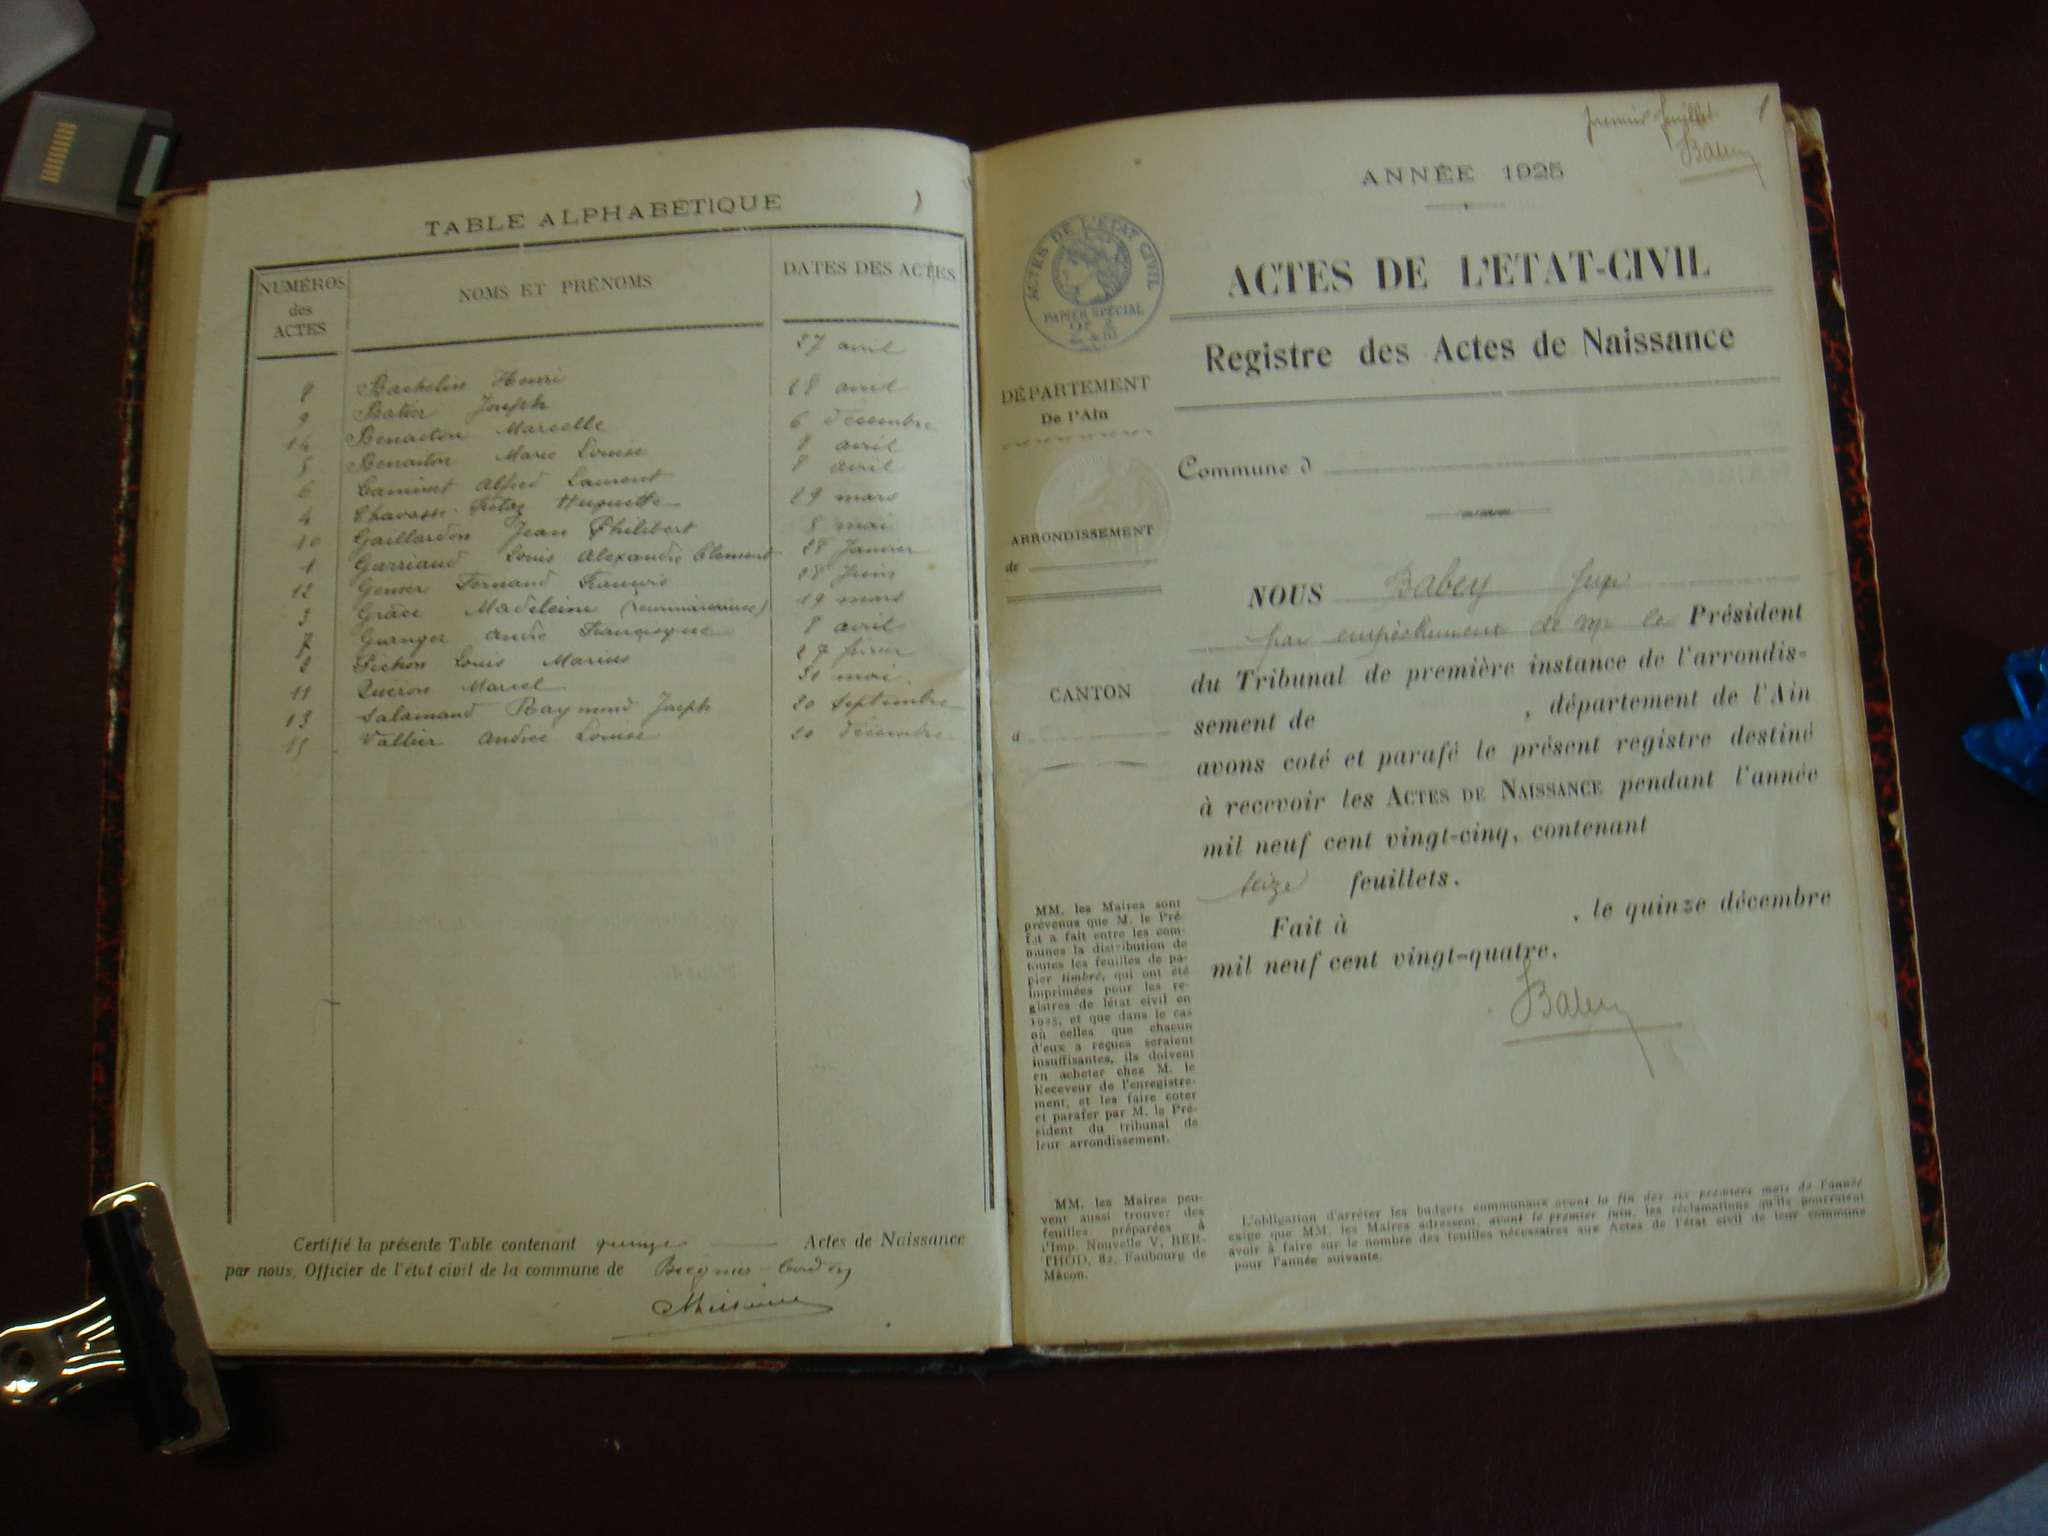 TABLE ALPHABETIQUE
NUMÉROS des ACTES
NOMS ET PRÉNOMS
DATES DES ACTES
8 Bachelin Henri 27 avril
9 Batier Joseph 28 avril
14 Benaiton Marcelle 6 décembre
5 Benaiton Marie Louise 8 avril
6 Caminet Alfred Laurent 8 avril
4 Chavasse Huguette 29 mars
10 Gaillardon Jean Philibert 5 mai
1 Garriaud Louis Alexandre Clement 28 Janvier
12 Fernand François 18 Juin
3 Grâce Madeleine 19 mars
7 Guanger André Françisque 8 avril
2 Pichon Louis Marius 27 février
11 Quéron Marcel 31 mai
13 Salamand Raymond Joseph 20 Septembre
15 Vallier Andrée Louise 20 décembre
Certifié la présente Table contenant quinze Actes de Naissance
par nous, Officier de l'état civil de la commune de Bregnier-Cordon
premier feuillet
1
Babey
ANNÉE 1925
ACTES DE L'ÉTAT CIVIL
PAPIER SPÉCIAL
ACTES DE L'ETAT-CIVIL
Registre des Actes de Naissance
DÉPARTEMENT
De l'Ain
Commune d
ARRONDISSEMENT
de
CANTON
d
NOUS Babey Juge
par empêchement de Mr le Président
du Tribunal de première instance de l'arrondis-
sement de , département de l'Ain
avons coté et parafé le présent registre destiné
à recevoir les ACTES DE NAISSANCE pendant l'année
mil neuf cent vingt-cinq, contenant
seize feuillets.
Fait à , le quinze décembre
mil neuf cent vingt-quatre.
Babey
MM. les Maires sont
prévenus que M. le Pré-
fet a fait entre les com-
munes la distribution de
toutes les feuilles de pa-
pier timbré, qui ont été
imprimées pour les re-
gistres de l'état civil en
1925, et que dans le cas
où celles que chacun
d'eux a reçues seraient
insuffisantes, ils doivent
en acheter chez M. le
Receveur de l'enregistre-
ment, et les faire coter
et parafer par M. le Pré-
sident du tribunal de
leur arrondissement.
MM. les Maires peu-
vent aussi trouver des
feuilles préparées à
l'Imp. Nouvelle V. BER-
THOD, 82, Faubourg de
Mâcon.
L'obligation d'arrêter les budgets communaux avant la fin des six premiers mois de l'année
exige que MM. les Maires adressent, avant le premier juin, les réclamations qu'ils pourraient
avoir à faire sur le nombre des feuilles nécessaires aux Actes de l'état civil de leur commune
pour l'année suivante.